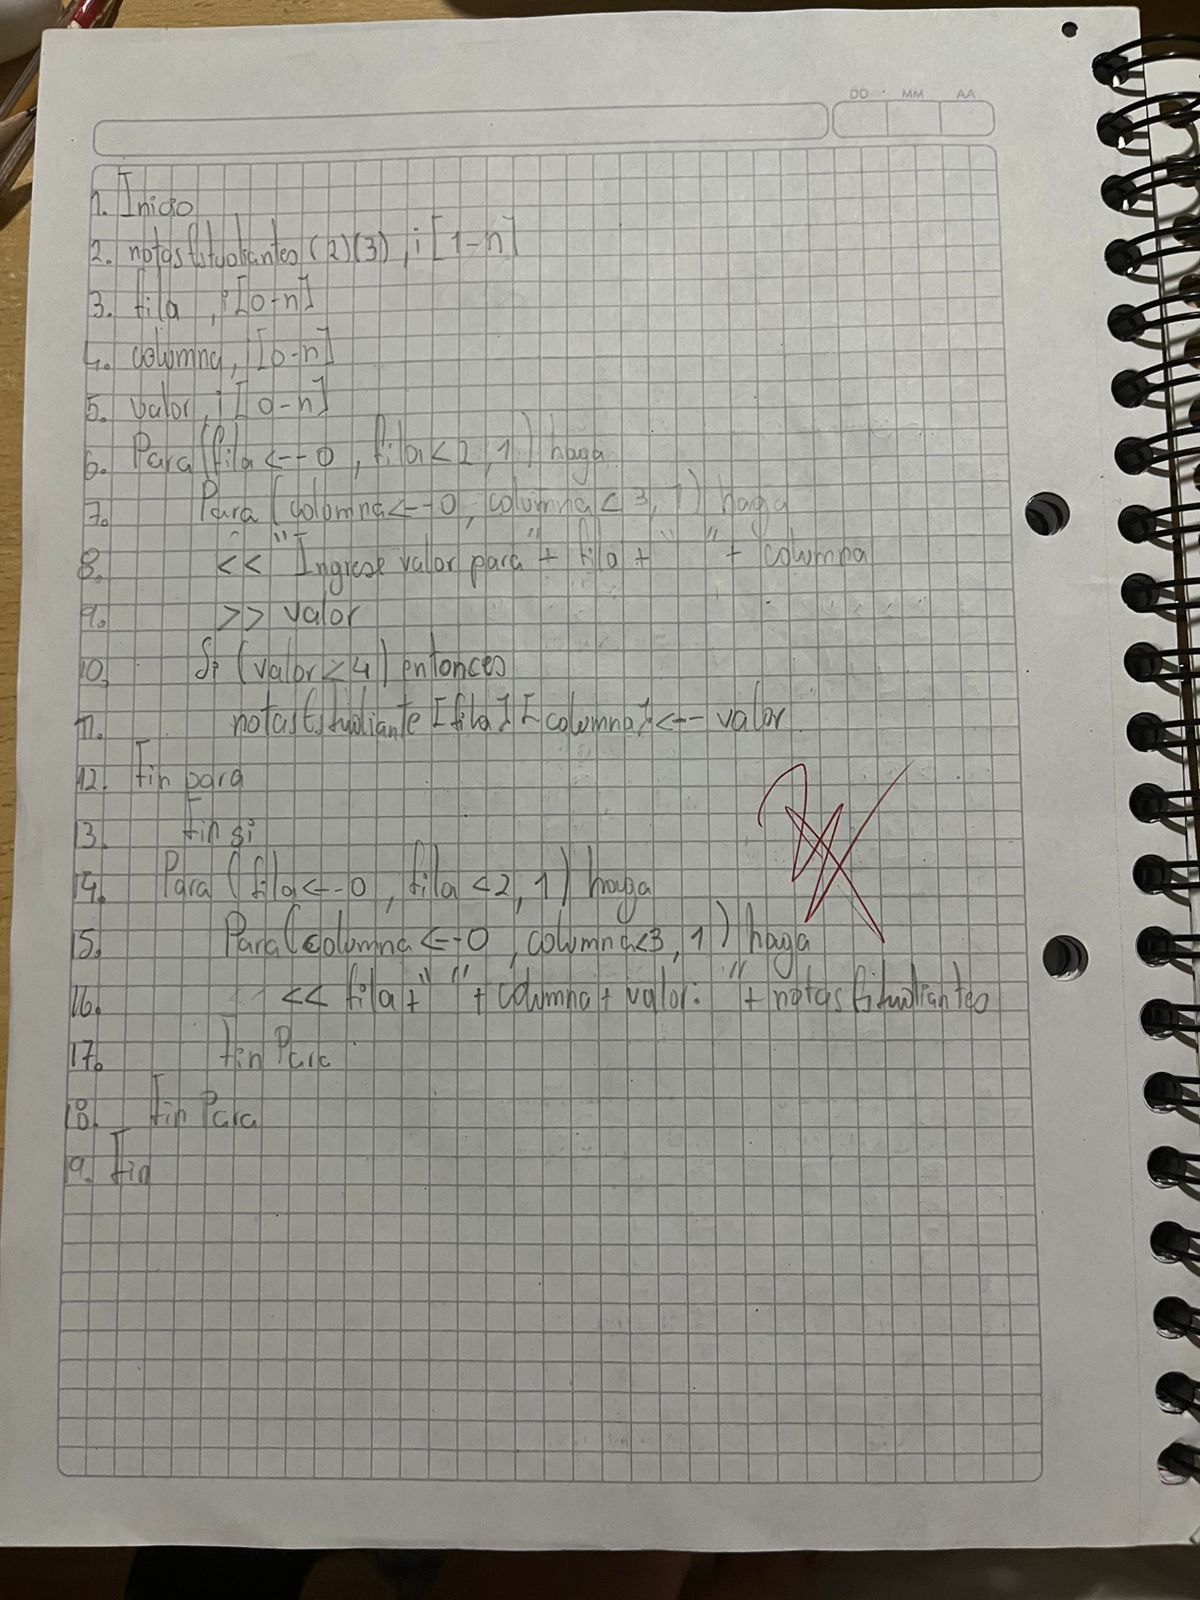 DD MM AA
1. Inicio
2. notasEstudiantes (2)(3), i [1-n]
3. fila, i[0-n]
4. columna, i [0-n]
5. valor, i [0-n]
6. Para (fila <-- 0, fila < 2, 1) haga
7. Para (columna <-- 0, columna < 3, 1) haga
8. << "Ingrese valor para" + fila + " " + columna
9. >> valor
10. Si (valor ≥ 4) entonces
11. notasEstudiante [fila] [columna] <-- valor
12. Fin para
13. Fin si
14. Para (fila <-- 0, fila < 2, 1) haga
15. Para (columna <-- 0, columna < 3, 1) haga
16. << fila + " " + columna + valor: " + notasEstudiantes
17. Fin Para
18. Fin Para
19. Fin